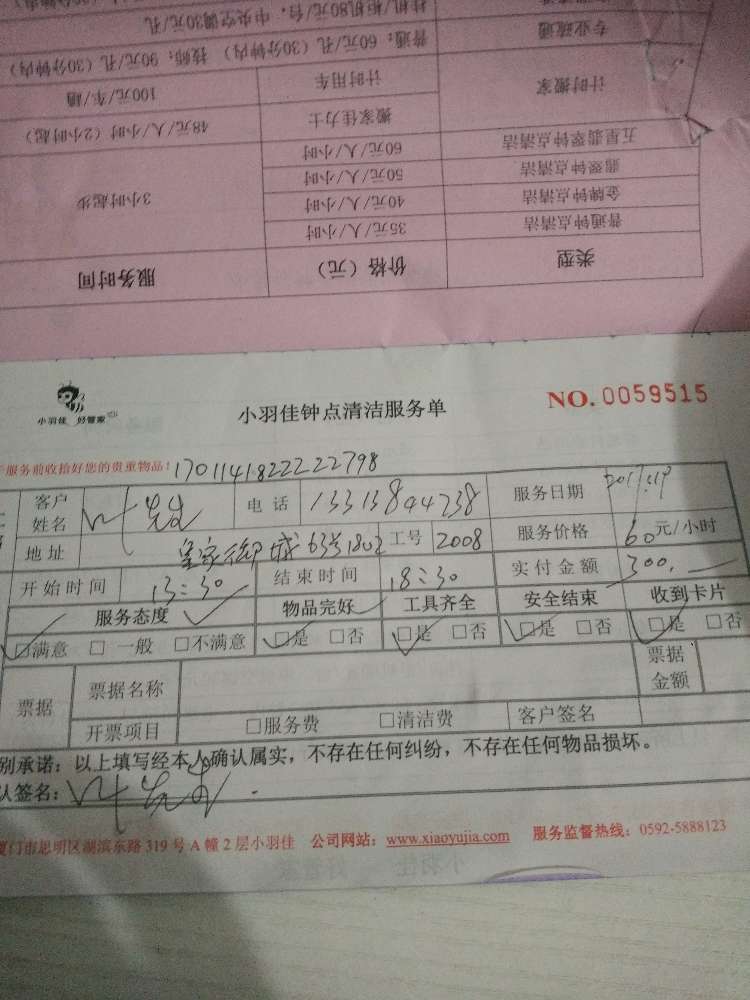 挂机/柜机80元/台，中央空调30元/孔
专业疏通 普通：60元/孔（30分钟内） 技师：90元/孔（30分钟内）
计时搬家 计时用车 100元/车/趟
搬家佳力士 48元/人/小时（2小时起）
五星翡翠钟点清洁 60元/人/小时
翡翠钟点清洁 50元/人/小时 3小时起步
金牌钟点清洁 40元/人/小时
普通钟点清洁 35元/人/小时
类型 价格（元） 服务时间
小羽佳 好管家
小羽佳钟点清洁服务单
NO. 0059515
服务前收拾好您的贵重物品！ 17011418222222798
客户姓名 叶先生 电话 13313844238 服务日期
地址 皇家御城63号1802 工号 2008 服务价格 60元/小时
开始时间 13:30 结束时间 18:30 实付金额 300.
服务态度 物品完好 工具齐全 安全结束 收到卡片
□满意 □一般 □不满意 □是 □否 □是 □否 □是 □否 □是 □否
票据 票据名称 票据金额
开票项目 □服务费 □清洁费 客户签名
别承诺：以上填写经本人确认属实，不存在任何纠纷，不存在任何物品损坏。
认签名：叶先生
厦门市思明区湖滨东路319号A幢2层小羽佳 公司网站：www.xiaoyujia.com 服务监督热线：0592-5888123